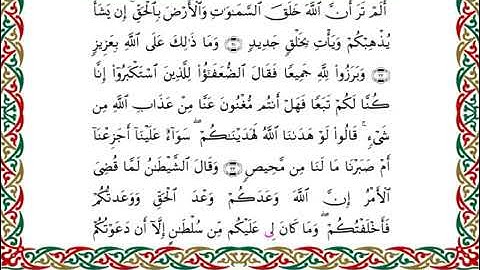 أَلَمْ تَرَ أَنَّ ٱللَّهَ خَلَقَ ٱلسَّمَٰوَٰتِ وَٱلْأَرْضَ بِٱلْحَقِّ ۚ إِن يَشَأْ
يُذْهِبْكُمْ وَيَأْتِ بِخَلْقٍ جَدِيدٍ ۝١٩ وَمَا ذَٰلِكَ عَلَى ٱللَّهِ بِعَزِيزٍ
۝٢٠ وَبَرَزُوا۟ لِلَّهِ جَمِيعًا فَقَالَ ٱلضُّعَفَٰٓؤُا۟ لِلَّذِينَ ٱسْتَكْبَرُوٓا۟ إِنَّا
كُنَّا لَكُمْ تَبَعًا فَهَلْ أَنتُم مُّغْنُونَ عَنَّا مِنْ عَذَابِ ٱللَّهِ مِن
شَىْءٍ ۚ قَالُوا۟ لَوْ هَدَىٰنَا ٱللَّهُ لَهَدَيْنَٰكُمْ ۖ سَوَآءٌ عَلَيْنَآ أَجَزِعْنَآ
أَمْ صَبَرْنَا مَا لَنَا مِن مَّحِيصٍ ۝٢١ وَقَالَ ٱلشَّيْطَٰنُ لَمَّا قُضِىَ
ٱلْأَمْرُ إِنَّ ٱللَّهَ وَعَدَكُمْ وَعْدَ ٱلْحَقِّ وَوَعَدتُّكُمْ
فَأَخْلَفْتُكُمْ ۖ وَمَا كَانَ لِىَ عَلَيْكُم مِّن سُلْطَٰنٍ إِلَّآ أَن دَعَوْتُكُمْ